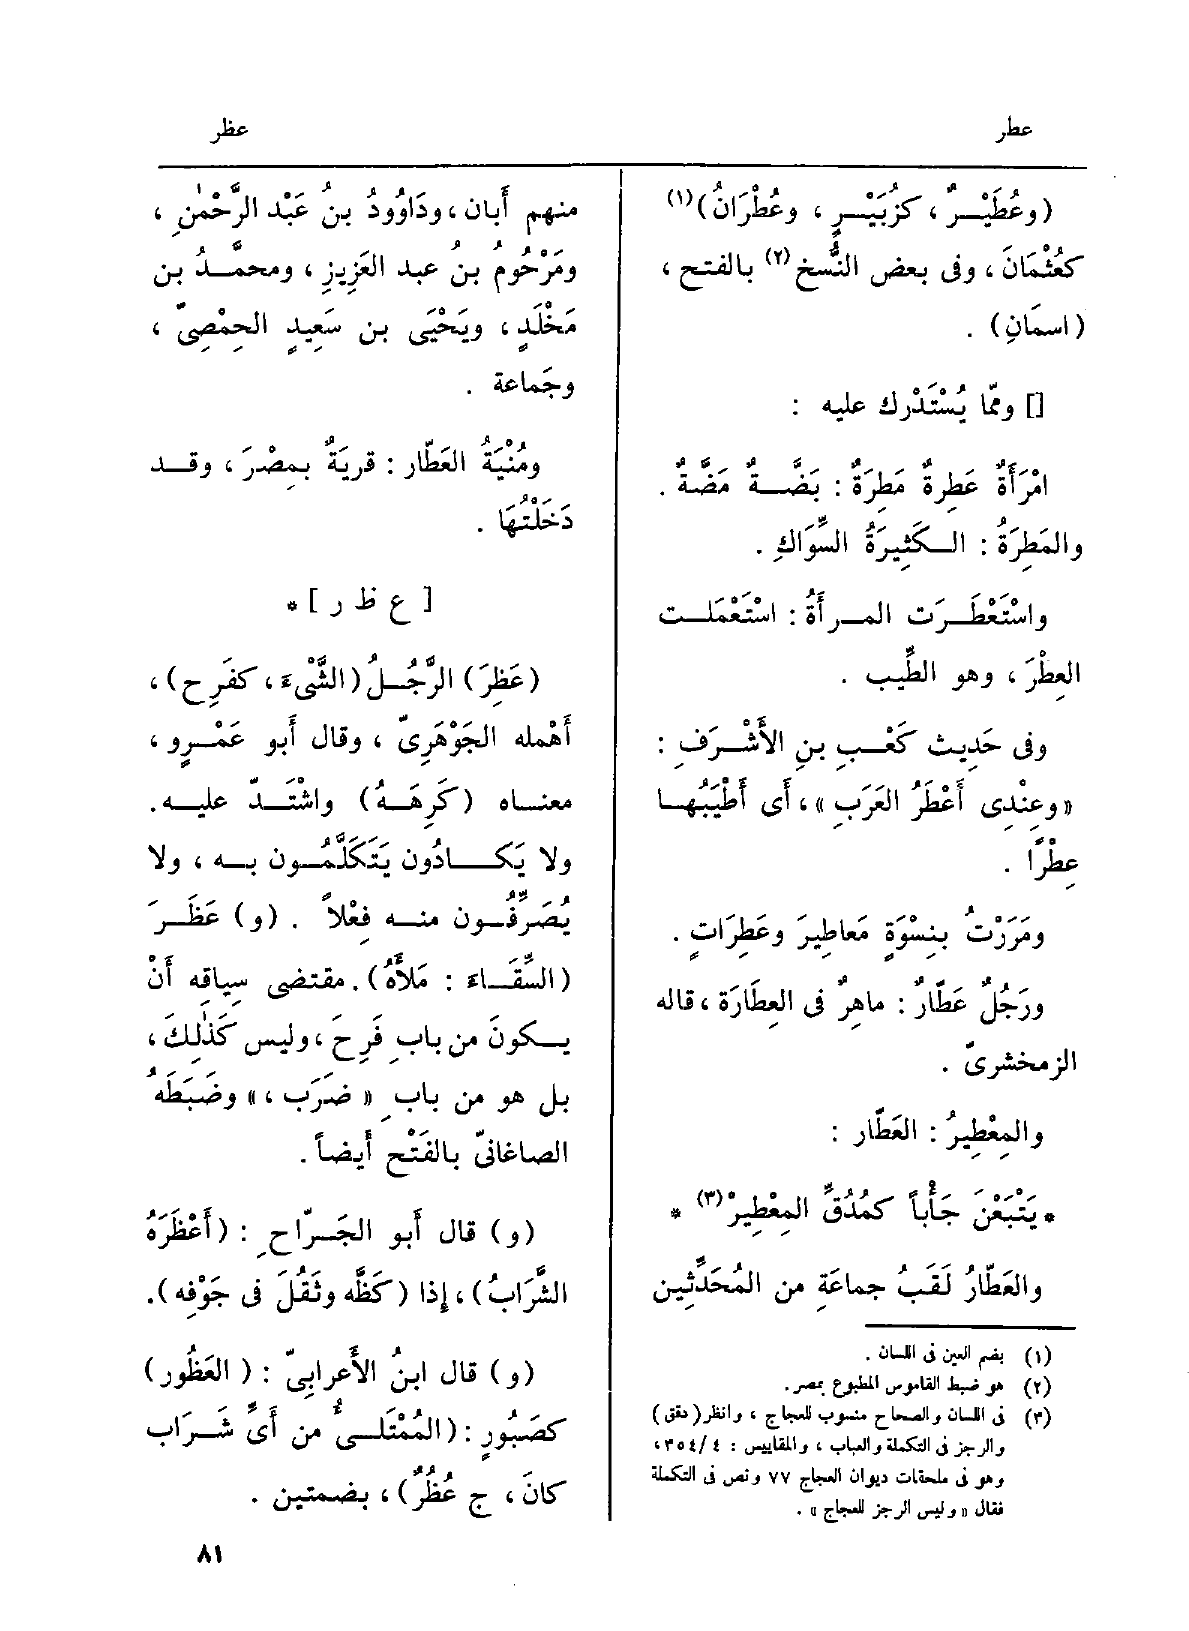 عطر
عظر
(وعُطَيْرٌ، كزُبَيْرٍ، وعُطْرَانُ)(١)
كعُثْمَانَ، وفى بعض النُّسخ(٢) بالفتح،
(اسمَانِ).
[] وممّا يُسْتَدْرك عليه :
امْرَأَةٌ عَطِرةٌ مَطِرَةٌ : بَضَّةٌ مَضَّةٌ .
والمَطِرَةُ : الكَثِيرَةُ السِّوَاكِ .
واسْتَعْطَرَت المرأَةُ : اسْتَعْمَلت
العِطْرَ، وهو الطِّيب .
وفى حَدِيث كَعْبِ بنِ الأَشْرَفِ :
«وعِنْدِى أَعْطَرُ العَرَبِ»، أى أَطْيَبُها
عِطْرًا .
ومَرَرْتُ بنِسْوَةٍ مَعاطِيرَ وعَطِرَاتٍ .
ورَجُلٌ عَطّارٌ : ماهِرٌ فى العِطَارَة، قاله
الزمخشرىّ .
والمِعْطِيرُ : العَطّار :
* يَتْبَعْنَ جَأْباً كمُدُقِّ المِعْطِيرْ(٣) *
والعَطّارُ لَقَبُ جماعَةٍ من المُحَدِّثِين
(١) بضم العين فى اللسان .
(٢) هو ضبط القاموس المطبوع بمصر.
(٣) فى اللسان والصحاح منسوب للعجاج، وانظر (دقق)
والرجز فى التكملة والعباب، والمقاييس : ٣٥٤/٤،
وهو فى ملحقات ديوان العجاج ٧٧ ونص فى التكملة
فقال «وليس الرجز للعجاج» .
منهم أَبان، ودَاوُودُ بنُ عَبْد الرَّحْمٰنِ،
ومَرْحُومُ بنُ عبد العَزِيزِ، ومحمَّدُ بن
مَخْلَدٍ، ويَحْيَى بن سَعِيدٍ الحِمْصِىّ،
وجَماعة .
ومُنْيَةُ العَطّار : قريَةٌ بمِصْرَ، وقد
دَخَلْتُهَا .
[ ع ظ ر ] *
(عَظِرَ) الرَّجُلُ (الشَّىْءَ، كفَرِح)،
أَهْمله الجَوْهَرِىّ، وقال أَبو عَمْرٍو،
معناه (كَرِهَهُ) واشْتَدّ عليه.
ولا يَكادُون يَتَكَلَّمُون به، ولا
يُصَرِّفُون منه فِعْلاً . (و) عَظَرَ
(السِّقَاءَ : مَلَأَهُ). مقتضى سِياقِه أَنْ
يكونَ من بابِ فَرِحَ، وليس كَذٰلِكَ،
بل هو من بابِ «ضَرَب»، وضَبَطَهُ
الصاغانىّ بالفَتْح أَيضاً .
(و) قال أَبو الجَرّاحِ : (أَعْظَرَهُ
الشَّرَابُ)، إِذا (كَظَّه وثَقُلَ فى جَوْفِه).
(و) قال ابنُ الأَعرابىّ : (العَظُور)
كصَبُورٍ : (المُمْتَلئُ من أَىِّ شَرَاب
كانَ، ج عُظُرٌ)، بضمتين .
٨١